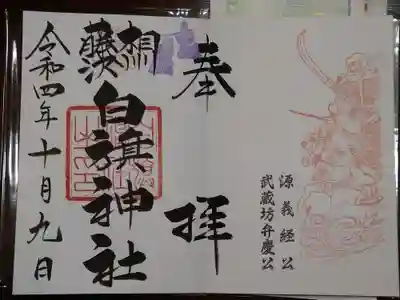 源義経公
武蔵坊弁慶公
奉拝
相州
藤沢
白旗神社
令和四年十月九日